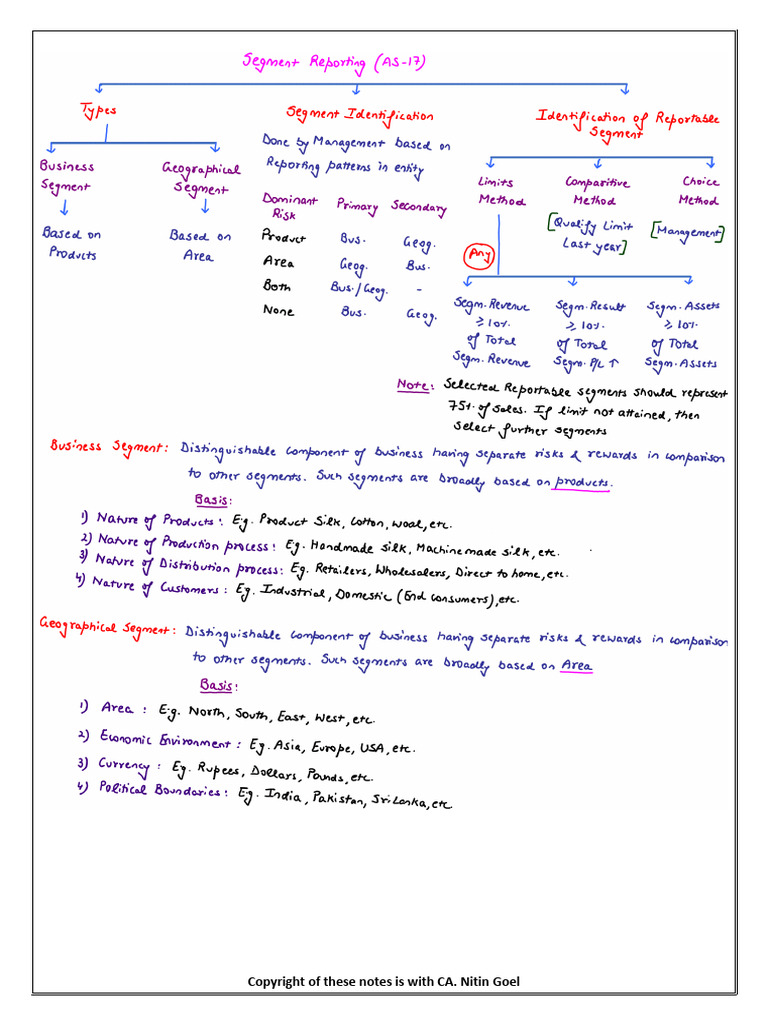 Segment Reporting (AS-17)
Types
Business Segment
Based on Products
Geographical Segment
Based on Area
Segment Identification
Done by Management based on
Reporting patterns in entity
Dominant Risk Primary Secondary
Product Bus. Geog.
Area Geog. Bus.
Both Bus./Geog. -
None Bus. Geog.
Identification of Reportable
Segment
Limits Method
Comparitive Method
[Qualify Limit
Last year]
Choice Method
[Management]
Any
Segm. Revenue
≥ 10%
of Total
Segm. Revenue
Segm. Result
≥ 10%
of Total
Segm. P/L ↑
Segm. Assets
≥ 10%
of Total
Segm. Assets
Note: Selected Reportable segments should represent
75% of sales. If limit not attained, then
select further segments
Business Segment: Distinguishable component of business having separate risks & rewards in comparison
to other segments. Such segments are broadly based on products.
Basis:
1) Nature of Products: E.g. Product Silk, Cotton, wool, etc.
2) Nature of Production process: Eg. Handmade silk, Machine made silk, etc.
3) Nature of Distribution process: Eg. Retailers, Wholesalers, Direct to home, etc.
4) Nature of Customers: Eg. Industrial, Domestic (End consumers), etc.
Geographical Segment: Distinguishable component of business having separate risks & rewards in comparison
to other segments. Such segments are broadly based on Area
Basis:
1) Area: E.g. North, South, East, West, etc.
2) Economic Environment: Eg. Asia, Europe, USA, etc.
3) Currency: Eg. Rupees, Dollars, Pounds, etc.
4) Political Boundaries: Eg. India, Pakistan, Sri Lanka, etc
Copyright of these notes is with CA. Nitin Goel